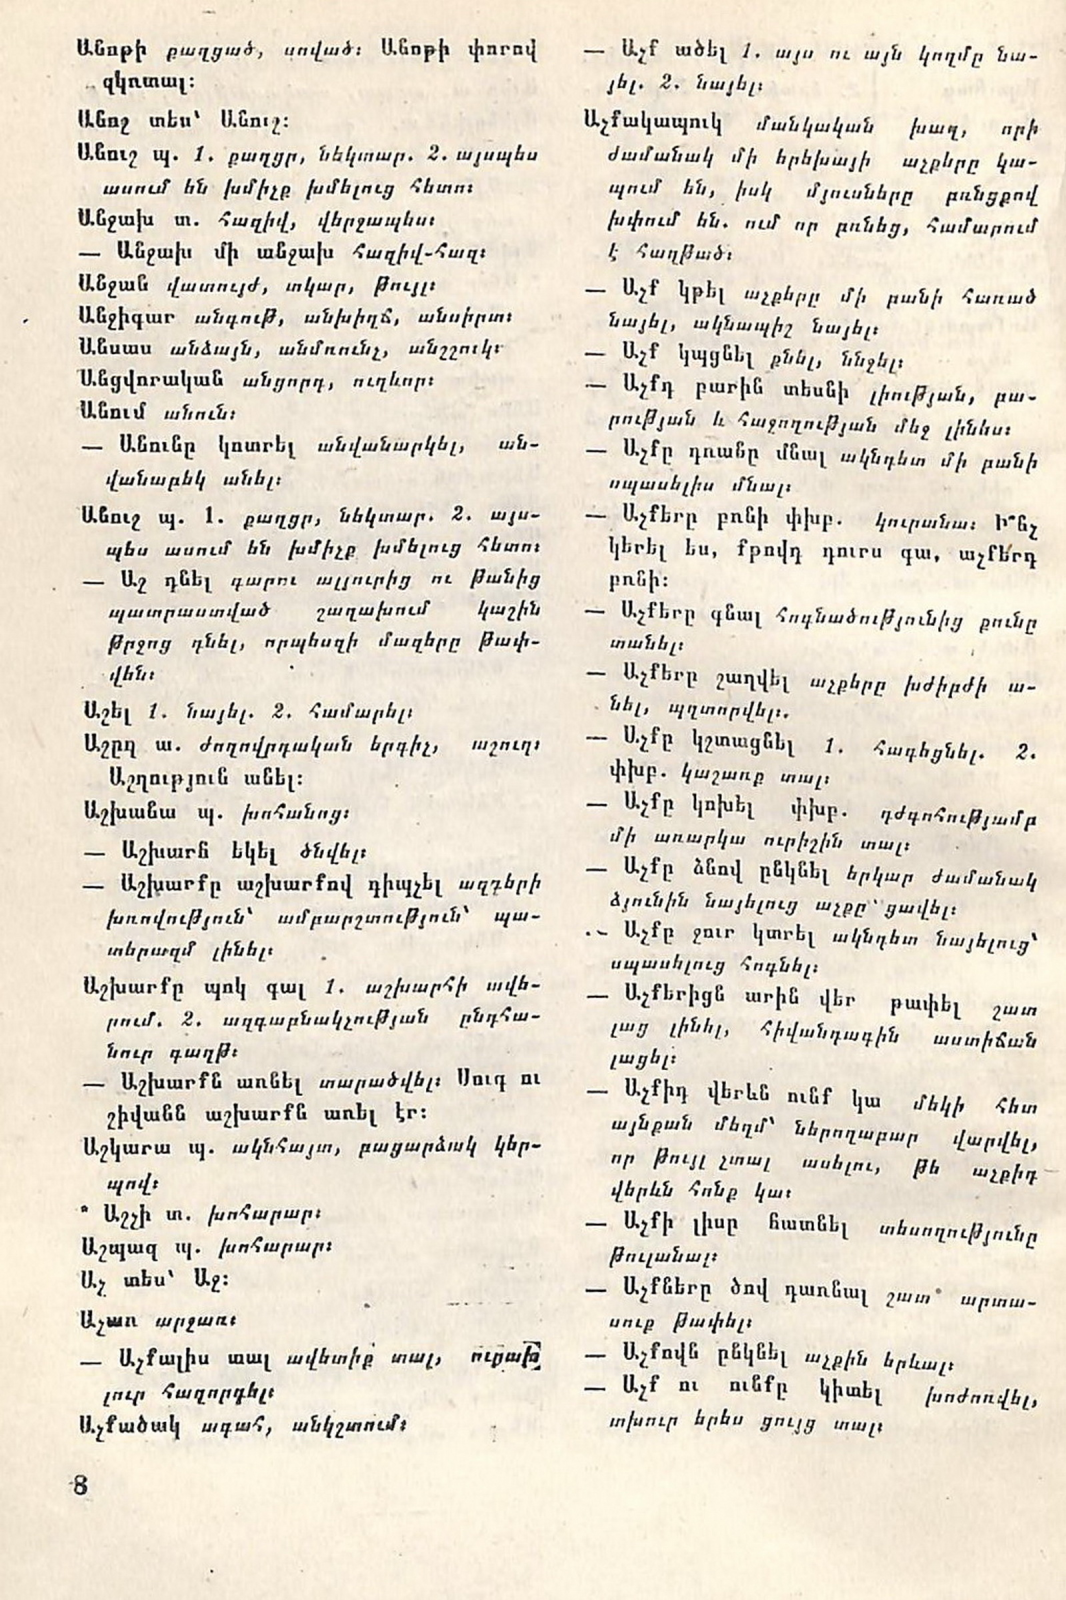 Անոթի քաղցած, սոված։ Անոթի փորով
զկռտալ։
Անոշ տես՝ Անուշ։
Անուշ պ. 1. քաղցր, նեկտար. 2. այսպես
ասում են խմիչք խմելուց հետո։
Անջախ տ. հազիվ, վերջապես։
— Անջախ մի անջախ հազիվ-հազ։
Անջան վատույժ, տկար, թույլ։
Անջիգար անգութ, անխիղճ, անսիրտ։
Անսաս անձայն, անմռունչ, անշշուկ։
Անցվորական անցորդ, ուղևոր։
Անում անուն։
— Անունը կոտրել անվանարկել, ան-
վանաբեկ անել։
Անուշ պ. 1. քաղցր, նեկտար. 2. այս-
պես ասում են խմիչք խմելուց հետո։
— Աշ դնել գարու ալյուրից ու թանից
պատրաստված շաղախում կաշին
թրջոց դնել, որպեսզի մազերը թափ-
վեն։
Աշել 1. նայել. 2. համարել։
Աշըղ ա. ժողովրդական երգիչ, աշուղ։
Աշղություն անել։
Աշխանա պ. խոհանոց։
— Աշխարն եկել ծնվել։
— Աշխարքը աշխարքով դիպչել ազգերի
խռովություն՝ ամբարշտություն՝ պա-
տերազմ լինել։
Աշխարքը պոկ գալ 1. աշխարհի ավե-
րում. 2. ազգաբնակչության ընդհա-
նուր գաղթ։
— Աշխարքն առնել տարածվել։ Սուգ ու
շիվանն աշխարքն առել էր։
Աշկարա պ. ակնհայտ, բացարձակ կեր-
պով։
* Աշչի տ. խոհարար։
Աշպազ պ. խոհարար։
Աչ տես՝ Աջ։
Աչառ արջառ։
— Աչքալիս տալ ավետիք տալ, ուրախ
լուր հաղորդել։
Աչքածակ ագահ, անկշտում։
— Աչք ածել 1. այս ու այն կողմը նա-
յել. 2. նայել։
Աչքակապուկ մանկական խաղ, որի
ժամանակ մի երեխայի աչքերը կա-
պում են, իսկ մյուսները բռնցքով
խփում են. ում որ բռնեց, համարում
է հաղթած։
— Աչք կթել աչքերը մի բանի հառած
նայել, ակնապիշ նայել։
— Աչք կպցնել քնել, ննջել։
— Աչքդ բարին տեսնի լիության, բա-
րության և հաջողության մեջ լինես։
— Աչքը դռանը մնալ ակնդետ մի բանի
սպասելիս մնալ։
— Աչքերը բռնի փխբ. կուրանա։ Ի՞նչ
կերել ես, քթովդ դուրս գա, աչքերդ
բռնի։
— Աչքերը գնալ հոգնածությունից քունը
տանել։
— Աչքերը շաղվել աչքերը խժիրժի ա-
նել, պղտորվել։
— Աչքը կշտացնել 1. հագեցնել. 2.
փխբ. կաշառք տալ։
— Աչքը կոխել փխբ. դժգոհությամբ
մի առարկա ուրիշին տալ։
— Աչքը ձնով ընկնել երկար ժամանակ
ձյունին նայելուց աչքը ցավել։
— Աչքը ջուր կտրել ակնդետ նայելուց՝
սպասելուց հոգնել։
— Աչքերիցն արին վեր թափել շատ
լաց լինել, հիվանդագին աստիճան
լացել։
— Աչքիդ վերևն ունք կա մեկի հետ
այնքան մեղմ՝ ներողաբար վարվել,
որ թույլ չտալ ասելու, թե աչքիդ
վերևն հոնք կա։
— Աչքի լիսը հատնել տեսողությունը
թուլանալ։
— Աչքները ծով դառնալ շատ արտա-
սուք թափել։
— Աչքովն ընկնել աչքին երևալ։
— Աչք ու ունքը կիտել խոժոռվել,
տխուր երես ցույց տալ։
8